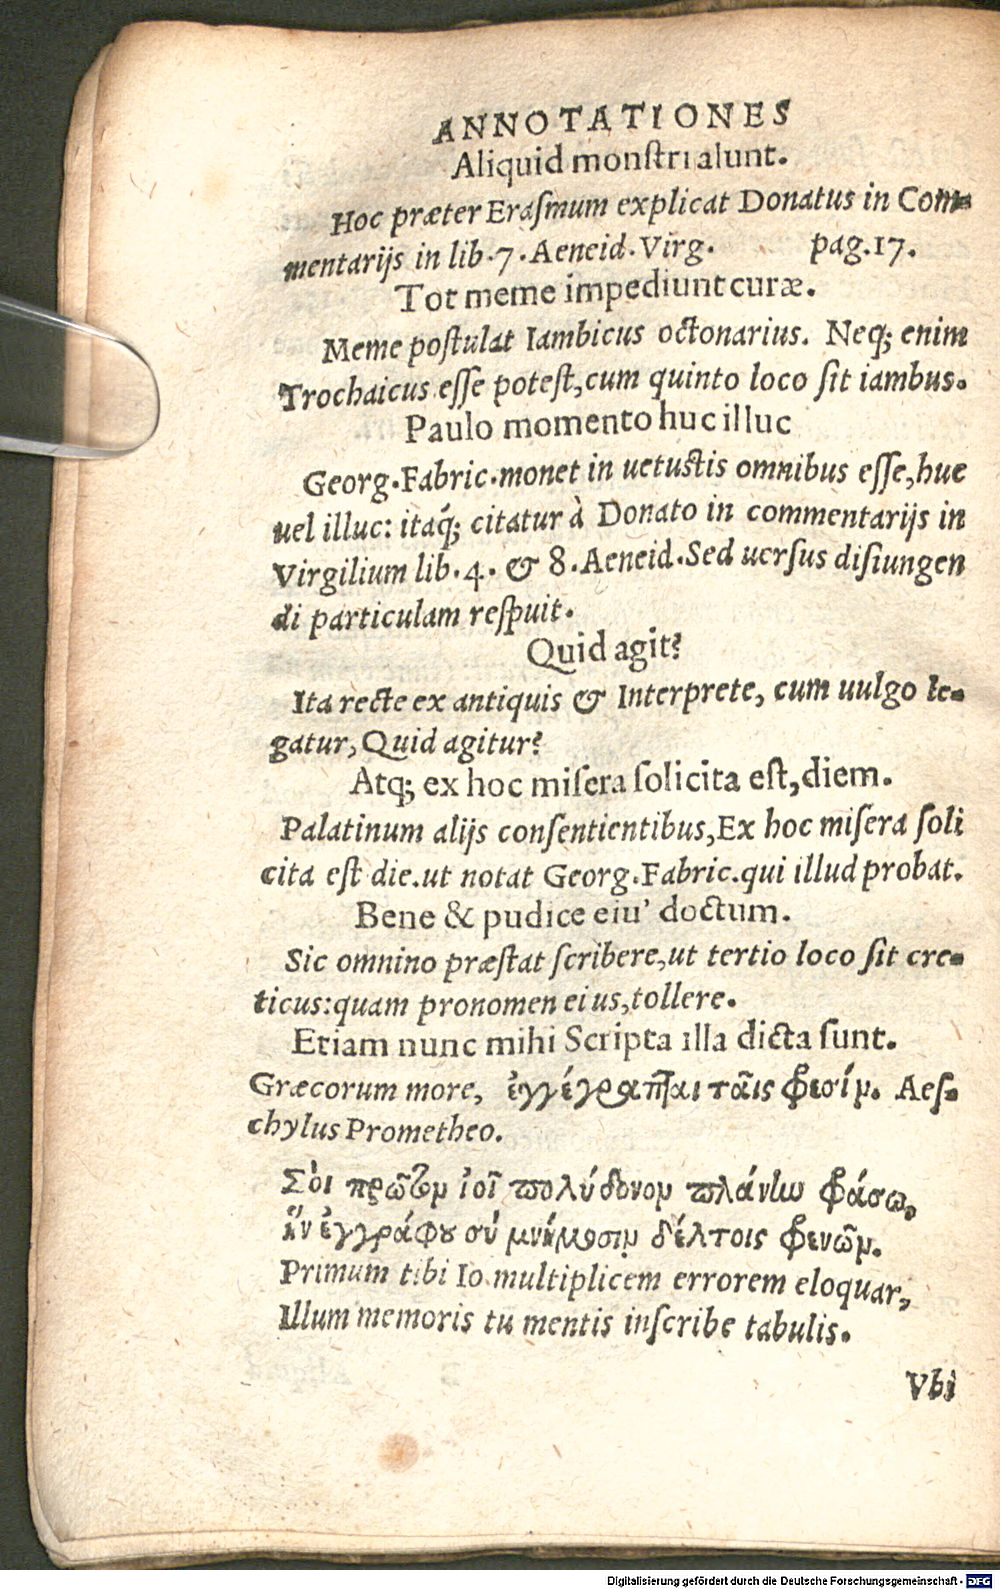 ANNOTATIONES
Aliquid monſtri alunt.
Hoc præter Eraſmum explicat Donatus in Com-
mentarijs in lib.7.Aeneid.Virg. pag.17.
Tot meme impediunt curæ.
Meme poſtulat Iambicus octonarius. Neq; enim
Trochaicus eſſe poteſt,cum quinto loco ſit iambus.
Paulo momento huc illuc
Georg.Fabric.monet in uetuſtis omnibus eſſe,huc
uel illuc: itaq́; citatur à Donato in commentarijs in
Virgilium lib.4. & 8.Aeneid.Sed uerſus diſiungen
di particulam reſpuit.
Quid agit?
Ita recte ex antiquis & Interprete, cum uulgo le-
gatur,Quid agitur?
Atq; ex hoc miſera ſolicita eſt,diem.
Palatinum alijs conſentientibus,Ex hoc miſera ſoli
cita eſt die.ut notat Georg.Fabric.qui illud probat.
Bene & pudice eiu' doctum.
Sic omnino præſtat ſcribere,ut tertio loco ſit cre-
ticus:quam pronomen eius,tollere.
Etiam nunc mihi Scripta illa dicta ſunt.
Græcorum more, ἐγγέγραπται ταῖς φρεσίν. Aeſ-
chylus Prometheo.
Σὸι πρῶτον ἰοῖ πολύδονον πλάνην φράσω,
ἣν ἐγγράφου σὺ μνήμοσιν δέλτοις φρενῶν.
Primum tibi Io multiplicem errorem eloquar,
Illum memoris tu mentis inſcribe tabulis.
Vbi
Digitalisierung gefördert durch die Deutsche Forschungsgemeinschaft - DFG